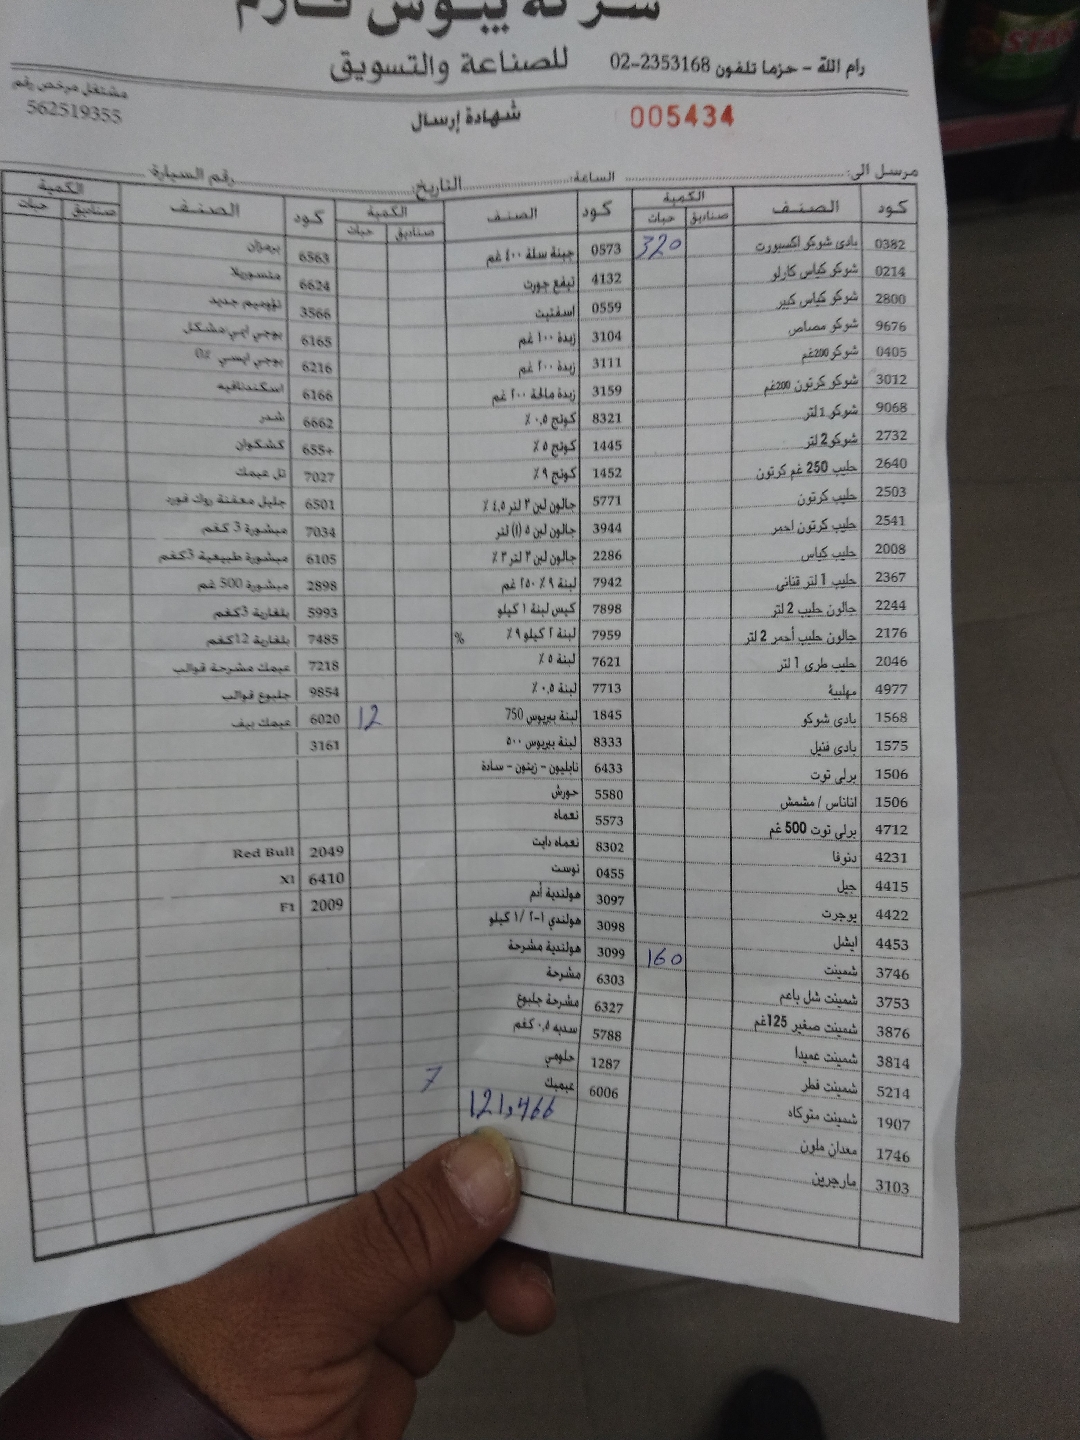 للصناعة والتسويق
رام الله - حزما تلفون 02-2353168
مشتغل مرخص رقم
562519355
شهادة إرسال
005434
مرسل الى: الساعة: التاريخ: رقم السيارة:
كود الصنف الكمية كود الصنف الكمية كود الصنف الكمية
صناديق حبات صناديق حبات صناديق حبات
0382 بادي شوكو اكسبورت 320
0214 شوكو كياس كارلو
2800 شوكو كياس كبير
9676 شوكو مصاص
0405 شوكو 200غم
3012 شوكو كرتون 200غم
9068 شوكو 1 لتر
2732 شوكو 2 لتر
2640 حليب 250 غم كرتون
2503 حليب كرتون
2541 حليب كرتون احمر
2008 حليب كياس
2367 حليب 1 لتر قناني
2244 جالون حليب 2 لتر
2176 جالون حليب أحمر 2 لتر
2046 حليب طري 1 لتر
4977 مهلبية
1568 بادي شوكو
1575 بادي فنيل
1506 برلي توت
1506 اناناس / مشمش
4712 برلي توت 500 غم
4231 دنوفا
4415 جيل
4422 يوجرت
4453 ايشل
3746 شمينت 160
3753 شمينت شل باعم
3876 شمينت صغير 125غم
3814 شمينت عميدا
5214 شمينت فطر
1907 شمينت متوكاه
1746 معدان ملون
3103 مارجرين
0573 جبنة سلة ٤٠٠ غم
4132 تيفع جورت
0559 اسفتيت
3104 زبدة ١٠٠ غم
3111 زبدة ٢٠٠ غم
3159 زبدة مالحة ٢٠٠ غم
8321 كوتج ٠,٥ ٪
1445 كوتج ٥ ٪
1452 كوتج ٩ ٪
5771 جالون لبن ٢ لتر ٤,٥ ٪
3944 جالون لبن ٥ (١) لتر
2286 جالون لبن ٢ لتر ٣ ٪
7942 لبنة ٩ ٪ ٢٥٠ غم
7898 كيس لبنة ١ كيلو
7959 لبنة ٢ كيلو ٩ ٪ %
7621 لبنة ٥ ٪
7713 لبنة ٠,٥ ٪
1845 لبنة بيريوس 750 12
8333 لبنة بيريوس ٥٠٠
6433 نابليون - زيتون - سادة
5580 حورش
5573 نعماه
8302 نعماه دايت
0455 توست
3097 هولندية أدم
3098 هولندي ١-٢ /١ كيلو
3099 هولندية مشرحة
6303 مشرحة
6327 مشرحة جلبوع
5788 سدبه ٠,٥ كغم
1287 حلومي
6006 عيميك 7
121,466
6563 برمزان
6624 متسوريلا
3566 نؤوميم جديد
6165 يوجي ايبي مشكل
6216 يوجي ايسي ٪0
6166 اسكندنافيه
6662 شدر
655+ كشكوان
7027 تل عيمك
6501 جليل معفنة روك فورد
7034 مبشورة 3 كغم
6105 مبشورة طبيعية 3كغم
2898 مبشورة 500 غم
5993 بلغارية 3كغم
7485 بلغارية 12كغم
7218 عيمك مشرحة قوالب
9854 جلبوع قوالب
6020 عيمك بيف
3161
2049 Red Bull
6410 Xl
2009 F1